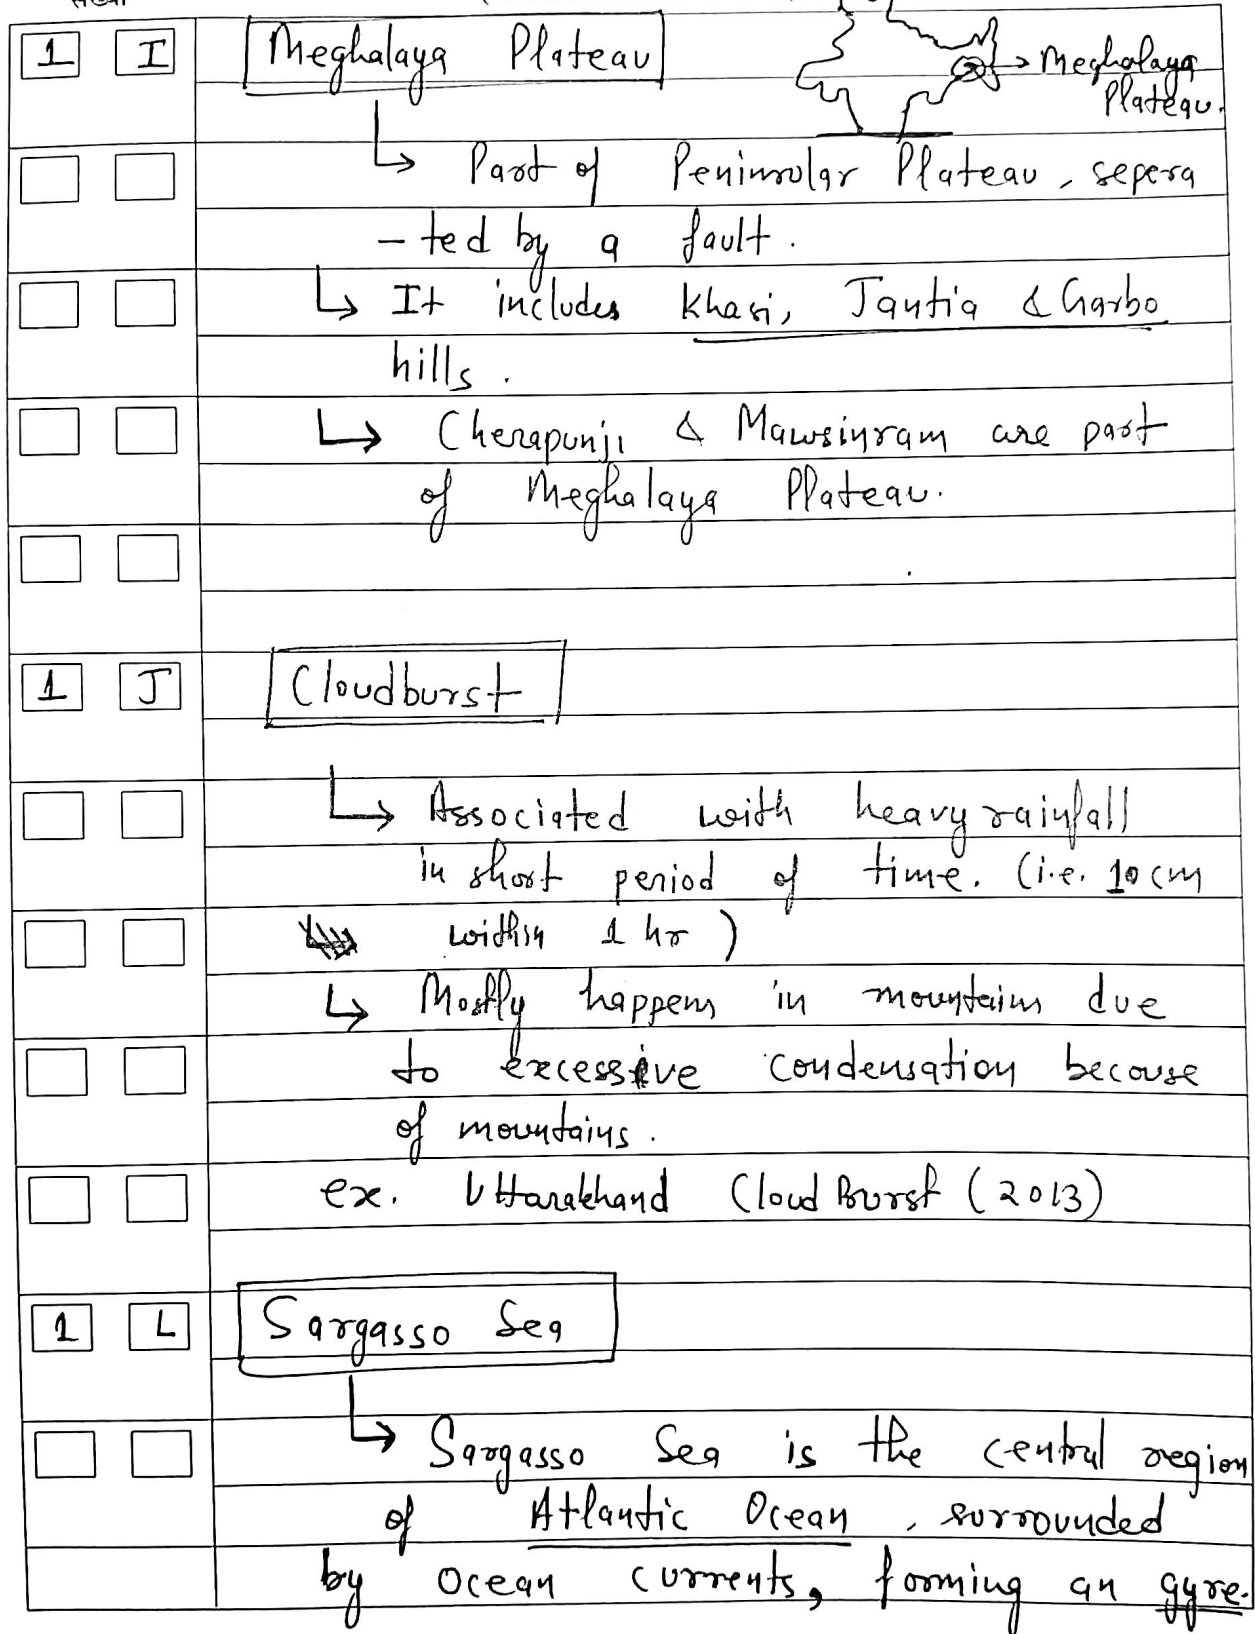 संख्या
1 I Meghalaya Plateau
→ Meghalaya
Plateau.
↳ Part of Peninsular Plateau, sepera
- ted by a fault.
↳ It includes Khasi, Jantia & Garbo
hills.
↳ Cherapunji & Mawsinram are part
of Meghalaya Plateau.
1 J Cloudburst
↳ Associated with heavy rainfall
in short period of time. (i.e. 10 cm
within 1 hr)
↳ Mostly happens in mountains due
to excessive condensation becouse
of mountains.
ex. Uttarakhand Cloud Burst (2013)
1 L Sargasso Sea
↳ Sargasso Sea is the central region
of Atlantic Ocean, surrounded
by ocean currents, forming an gyre.